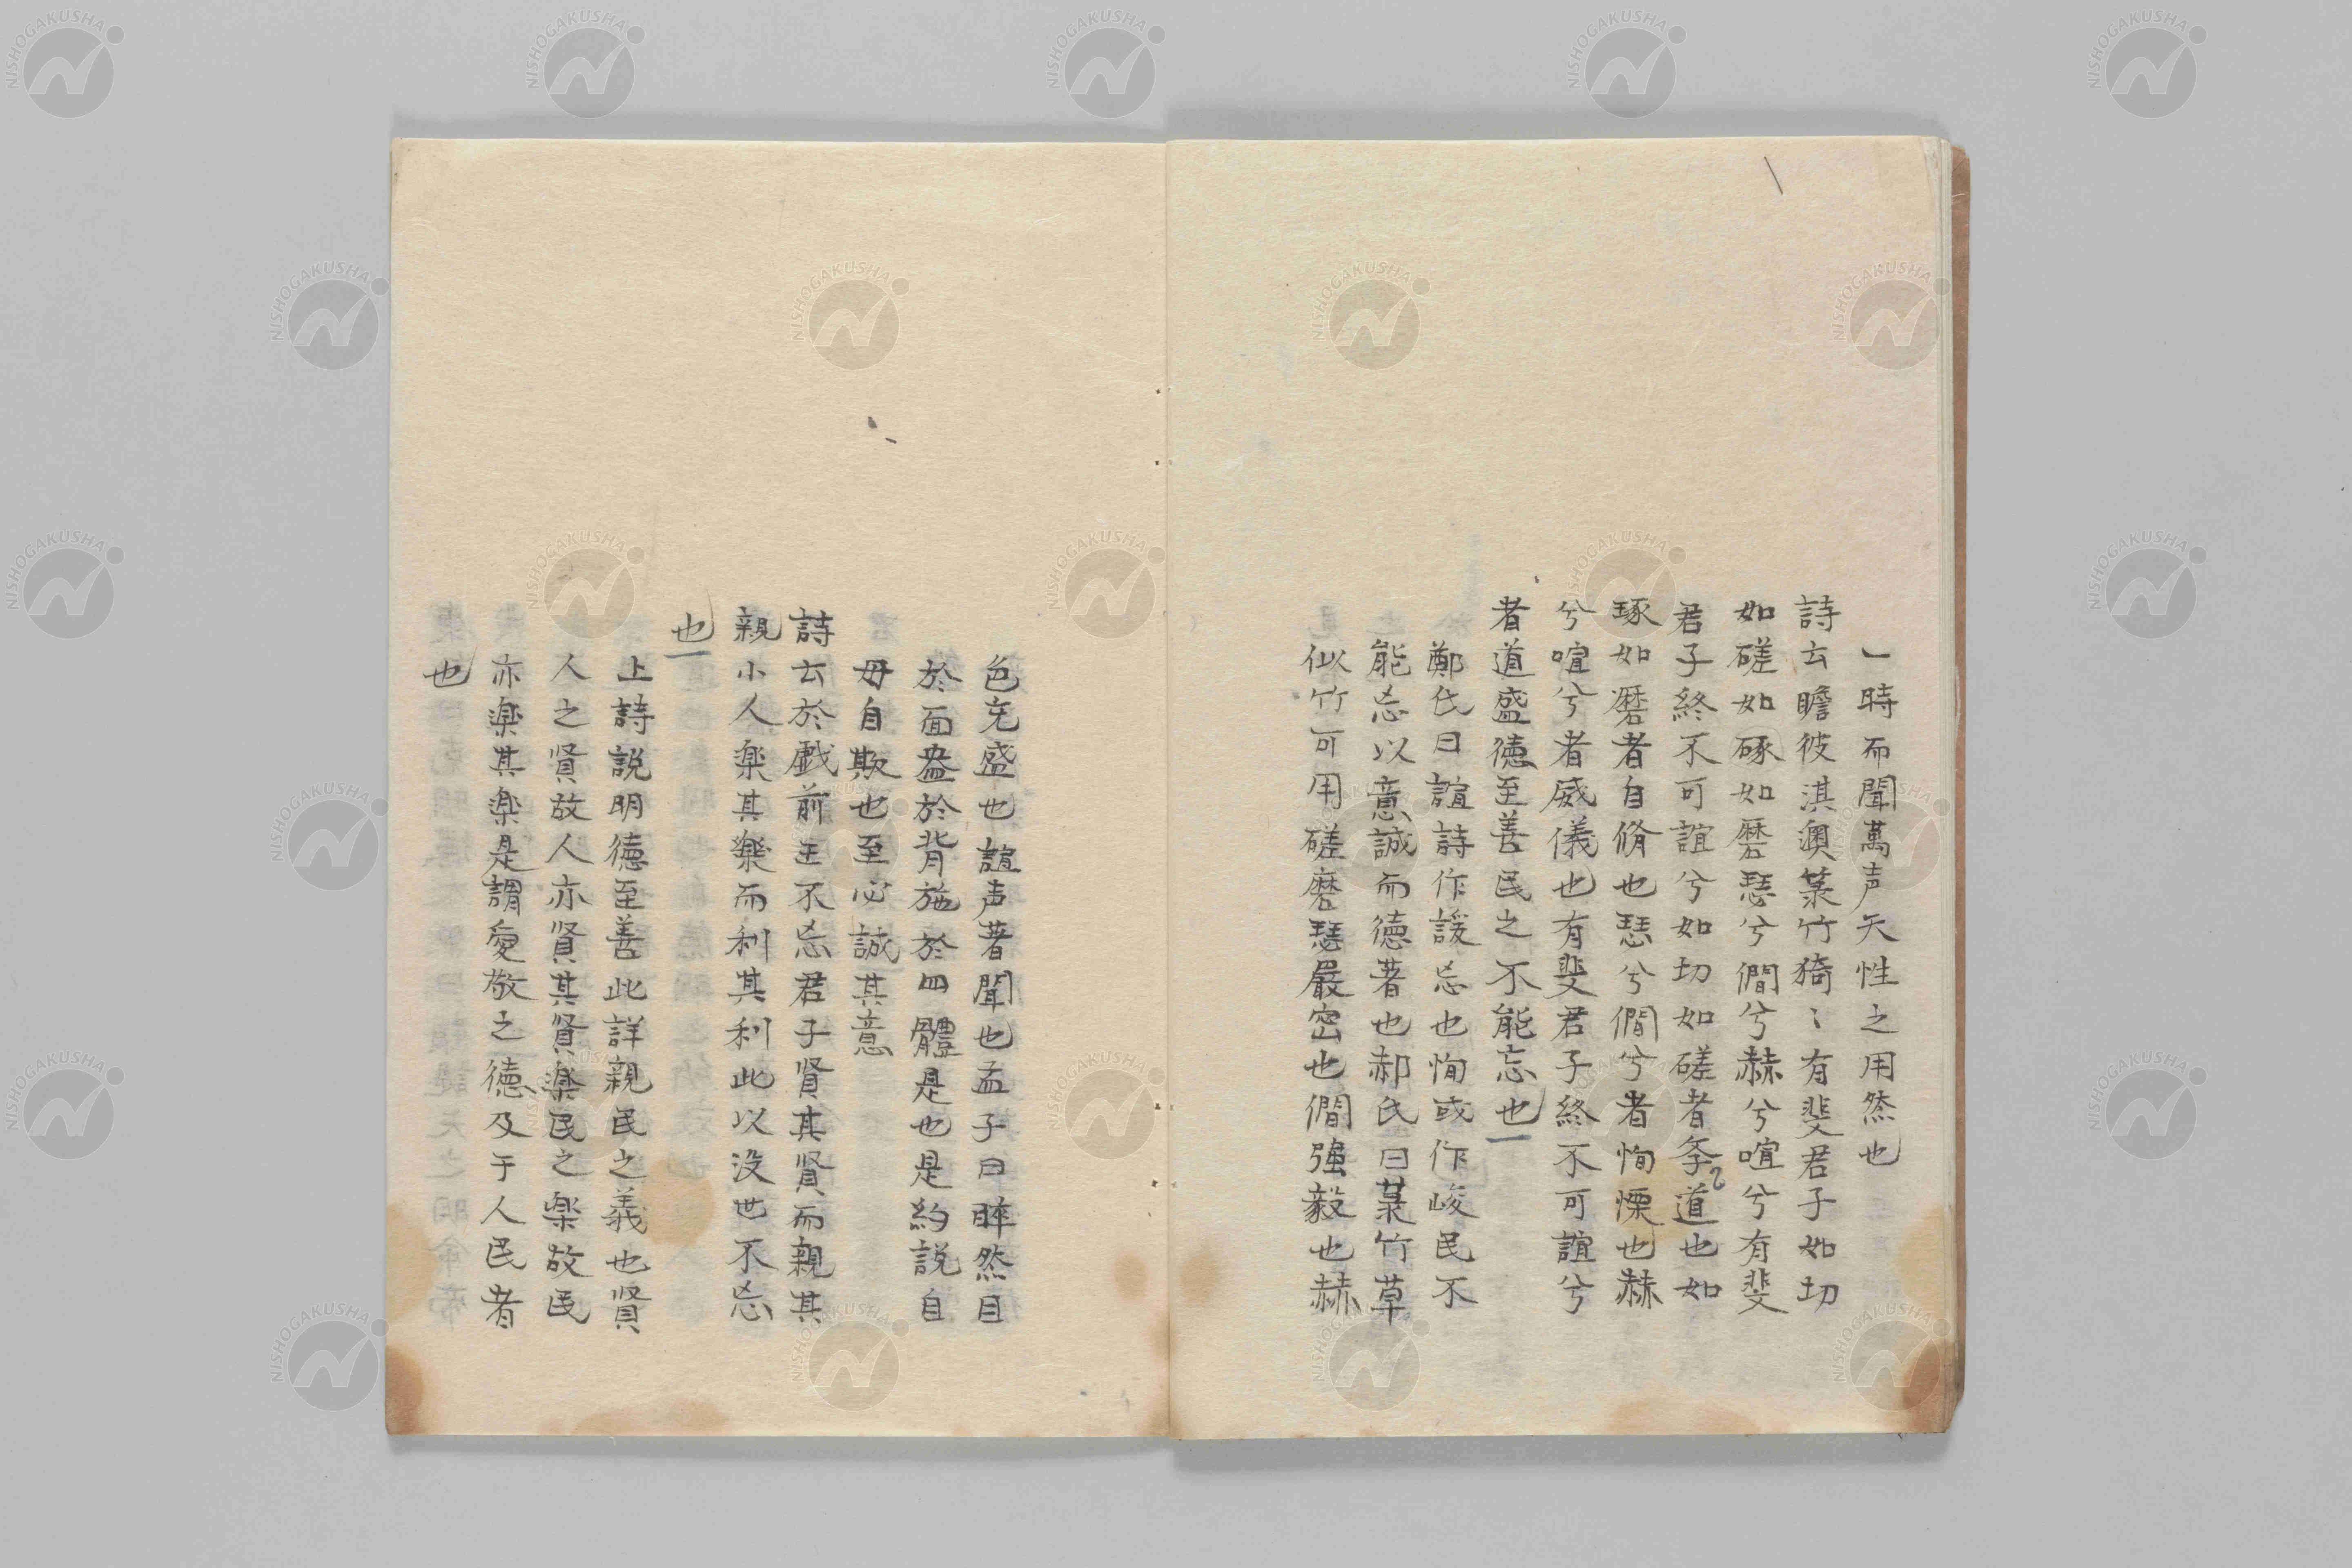 一時而聞萬声天性之用然也
詩云瞻彼淇澳菉竹猗〻有斐君子如切
如磋如琢如磨瑟兮僩兮赫兮喧兮有斐
君子終不可諠兮如切如磋者斈道也如
琢如磨者自脩也瑟兮僩兮者恂慄也赫
兮喧兮者威儀也有斐君子終不可諠兮
者道盛徳至善民之不能忘也
鄭氏曰諠詩作諼忘也恂或作峻民不
能忘以意誠而徳著也郝氏曰菉竹草
似竹可用磋磨瑟嚴密也僩強毅也赫
色充盛也諠声著聞也孟子曰睟然目
於面盎於背施於四體是也是約説自
毋自欺也至必誠其意
詩云於戯前王不忘君子賢其賢而親其
親小人楽其楽而利其利此以没世不忘
也
上詩説明徳至善此詳親民之義也賢
人之賢故人亦賢其賢楽民之楽故民
亦楽其楽是謂愛敬之徳及于人民者
也
NISHOGAKUSHA